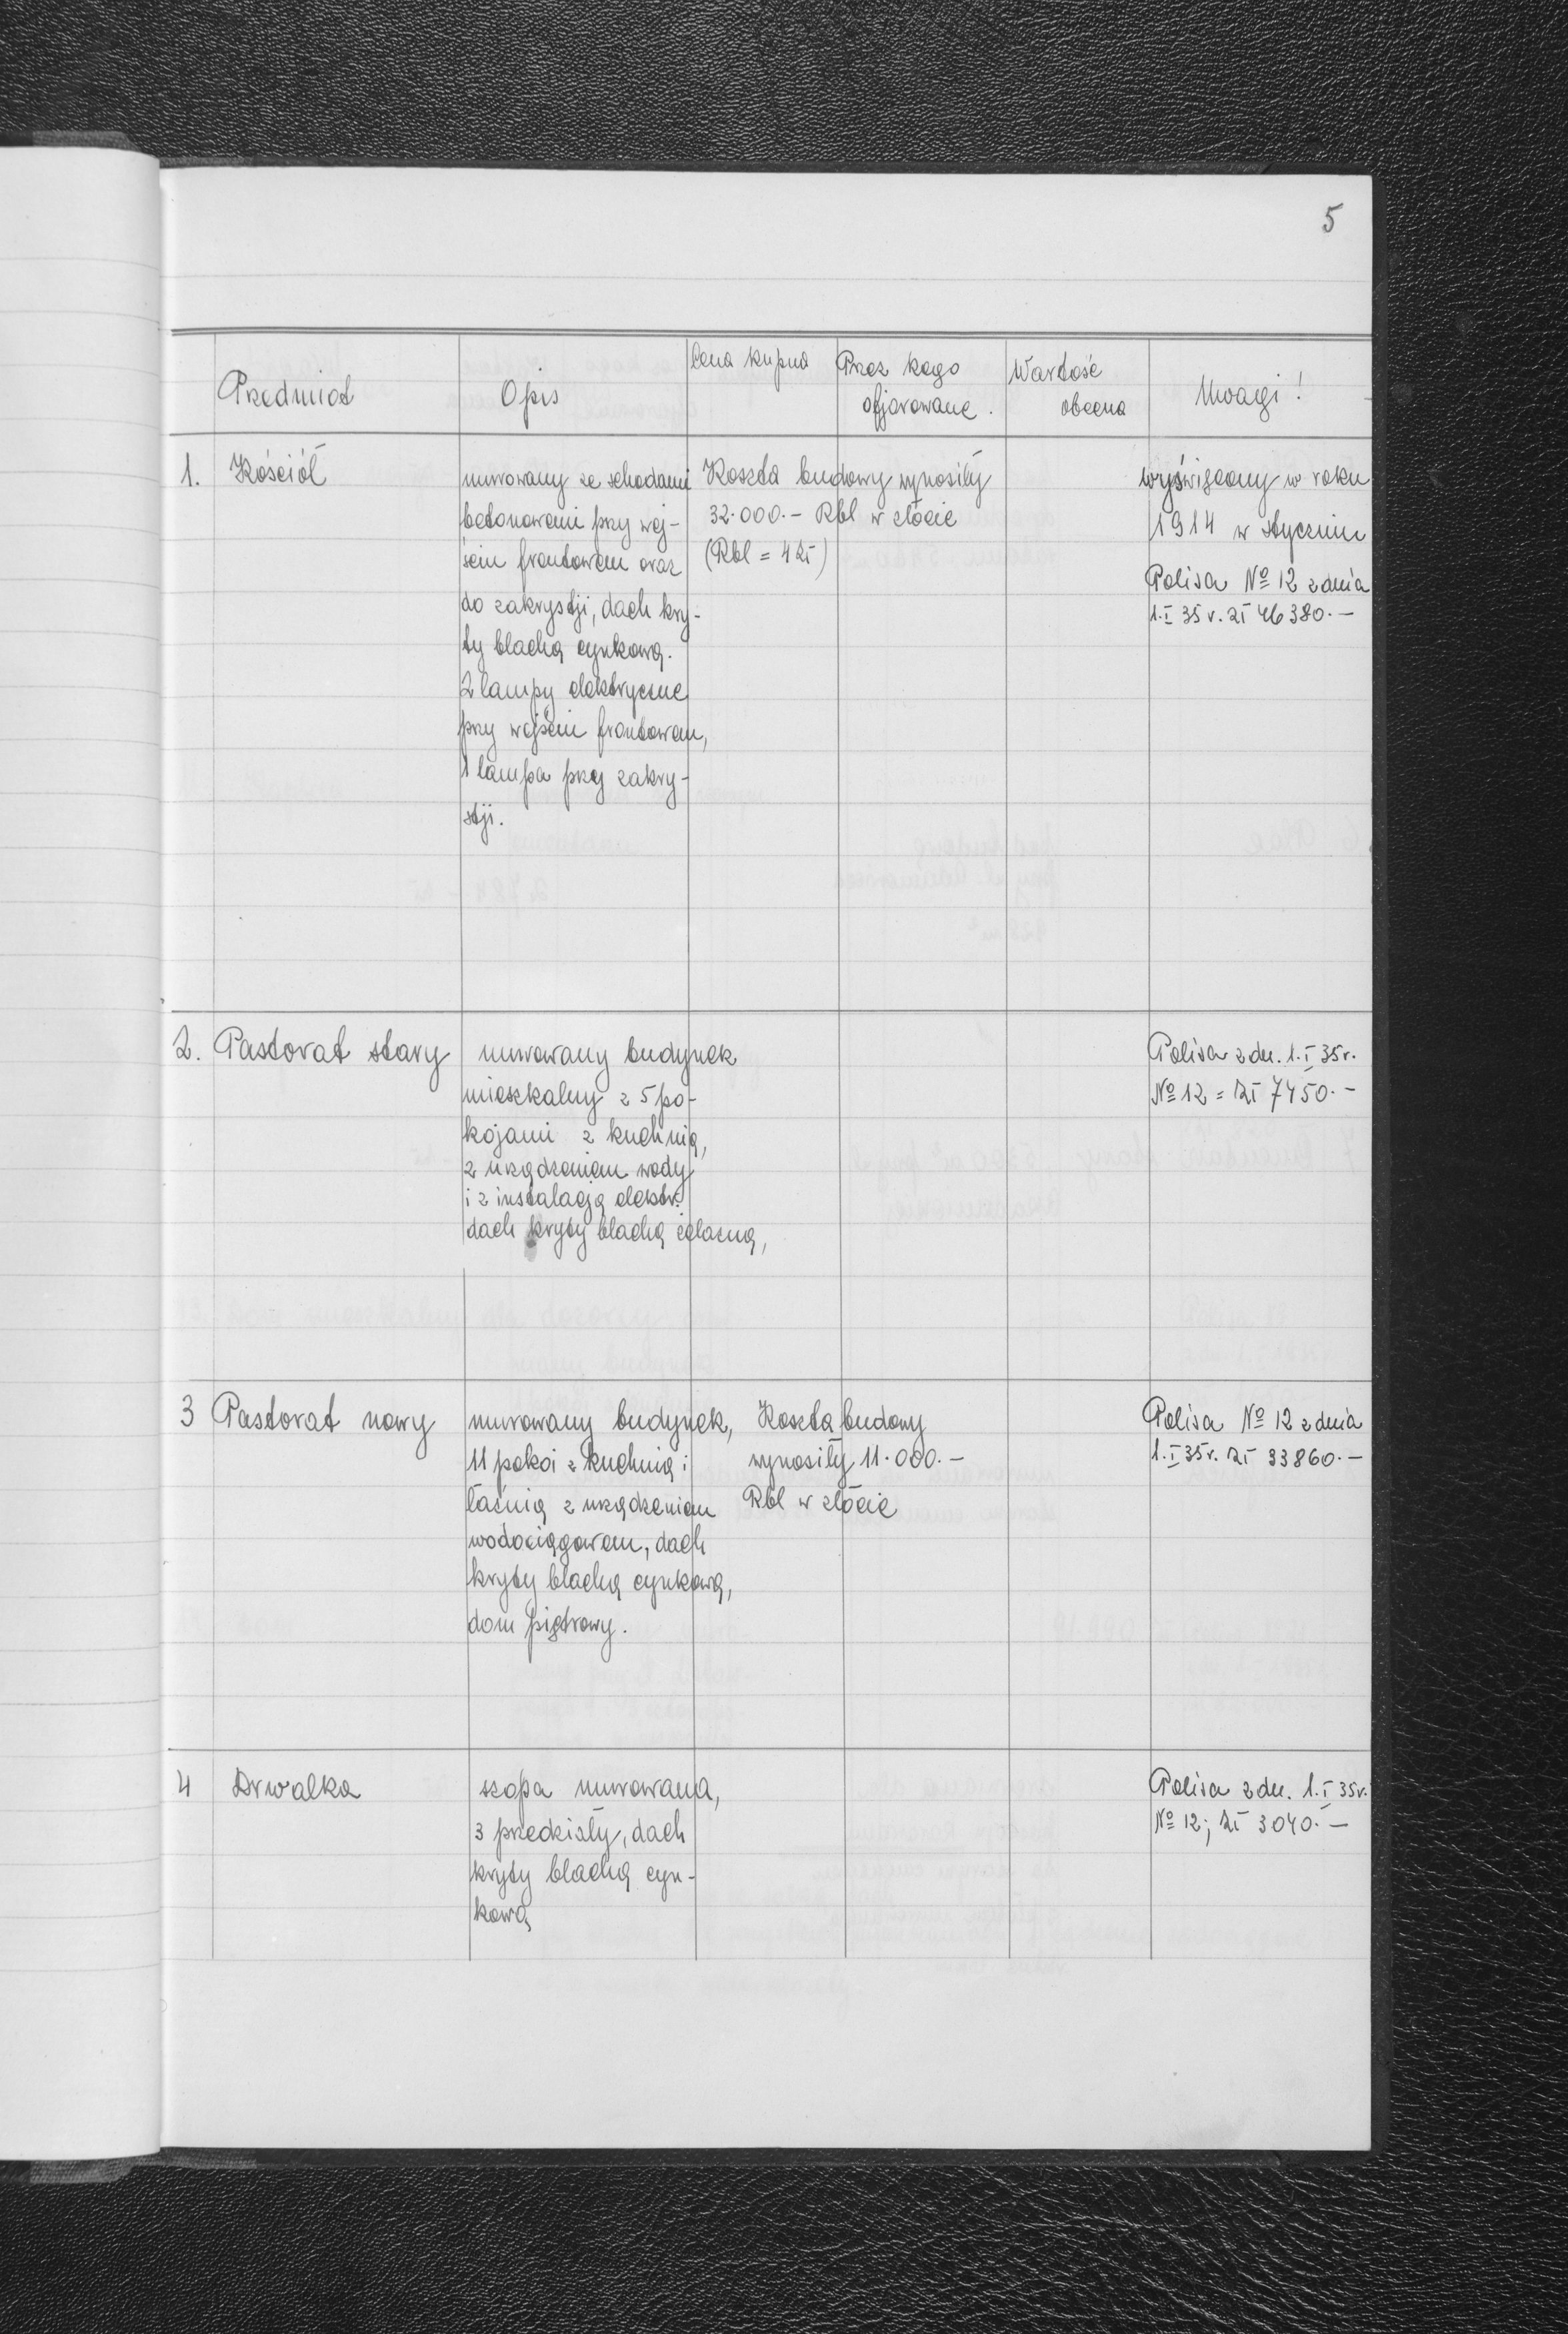 5
Przedmiot Opis Cena kupna Przez kogo ofjarowane. Wartość obecna Uwagi!
1. Kościół
murowany ze schodami
betonowemi przy wej-
ściu frontowem oraz
do zakrystji, dach kry-
ty blachą cynkową.
2 lampy elektryczne
przy wejściu frontowem,
1 lampa przy zakry-
stji.
Koszta budowy wynosiły
32.000.- Rbl w złocie
(Rbl = 4 zł)
wyświęcony w roku
1914 w styczniu
Polisa No 12 z dnia
1.I 35 r. zł 46380.-
2. Pastorat stary
murowany budynek
mieszkalny z 5 po-
kojami z kuchnią,
z urządzeniem wody
i z instalacją elektr.
dach kryty blachą żelazną,
Polisa z dn. 1.I 35 r.
No 12 = zł 7450.-
3 Pastorat nowy
murowany budynek,
11 pokoi z kuchnią i
łaźnią z urządzeniem
wodociągowem, dach
kryty blachą cynkową,
dom piętrowy.
Koszta budowy
wynosiły 11.000.-
Rbl w złocie
Polisa No 12 z dnia
1.I 35 r. zł 33860.-
4 Drwalka
szopa murowana,
3 przedziały, dach
kryty blachą cyn-
kową
Polisa z dn. 1.I 35 r.
No 12; zł 3040.-